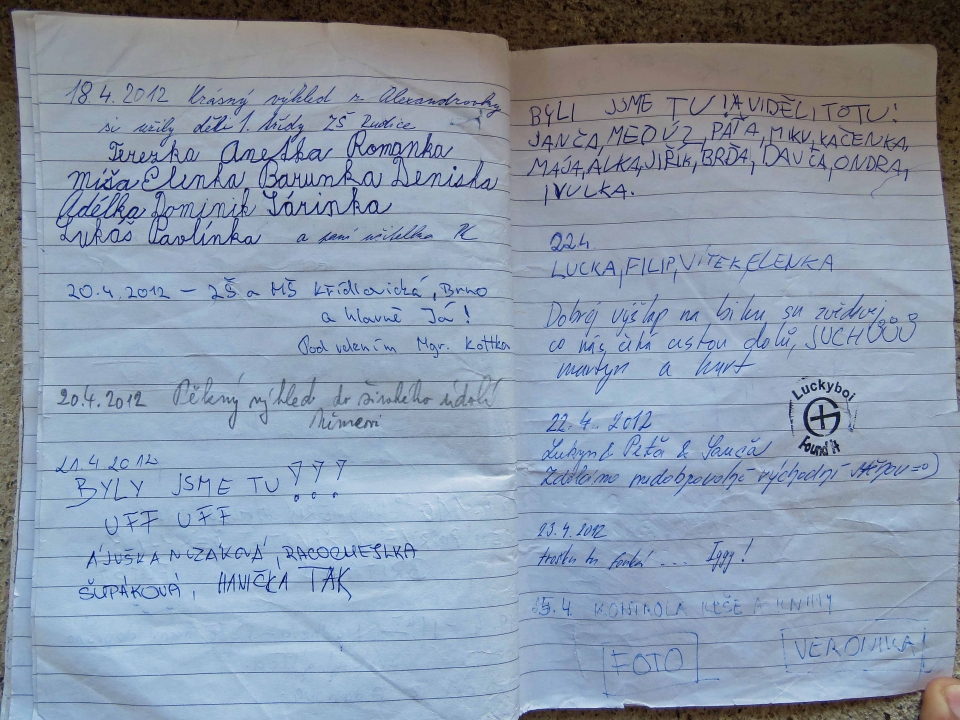 18.4.2012 Krásný výhled z Alexandrovky
si užily děti 1. třídy ZŠ Rudice
Terezka Anetka Romanka
Míša Elenka Barunka Deniska
Adélka Dominik Tárinka
Lukáš Pavlínka a paní učitelka
20.4.2012 – ZŠ a MŠ Křídlovická, Brno
a hlavně Já!
Pod velením Mgr. Kottka
20.4.2012 Pěkný výhled do širokého údolí
21.4 2012
BYLY JSME TU !!!
UFF UFF
ŠUPÁKOVÁ, HANIČKA TAK
BYLI JSME TU !A VIDĚLI TOTU:
JANČA, MEDÚZ, PÁŤA, MIKU, KAČENKA,
MÁJA, ALKA, JIŘÍK, BRĎA, DAVČA, ONDRA,
IVULKA.
22.4
LUCKA, FILIP, VÍTEK, ELENKA
Dobrej výšlap na biku su zvědvej
co nás čeká cestou dolů, JUCHŮŮŮ
martyn a kurt
Luckyboi
Found it
22.4. 2012
Lukyn & Peťa & Janča
Zdoláno nedobrovolně východní stěnou =)
23.4.2012
trošku tu fouká .... Iggy!
25.4 KONTROLA KEŠE A KNIHY
FOTO VERONIKA